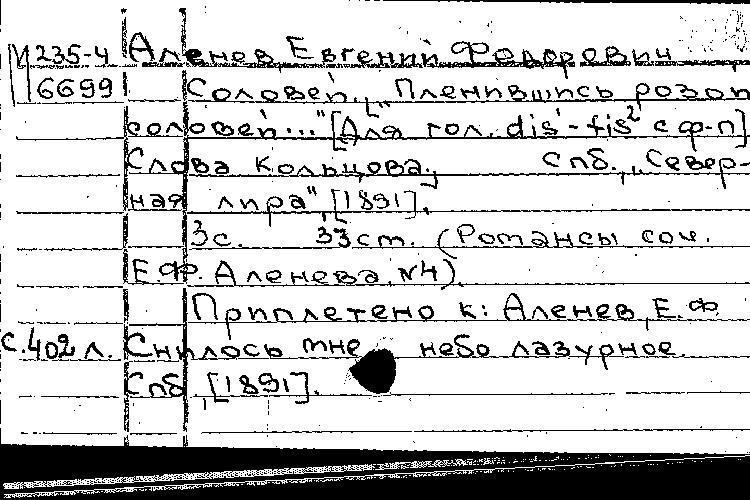 М 235-4 Аленев, Евгений Федорович
6699 Соловей. „Пленившись розой
соловей..." [Для гол. dis¹-fis² с ф-п]
Слова Кольцова. Спб., „Север-
ная лира", [1891].
3с. 33см. (Романсы соч.
Е.Ф. Аленева. №4).
Приплетено к: Аленев, Е.Ф.
с. 402 л. Снилось мне небо лазурное.
Спб., [1891].